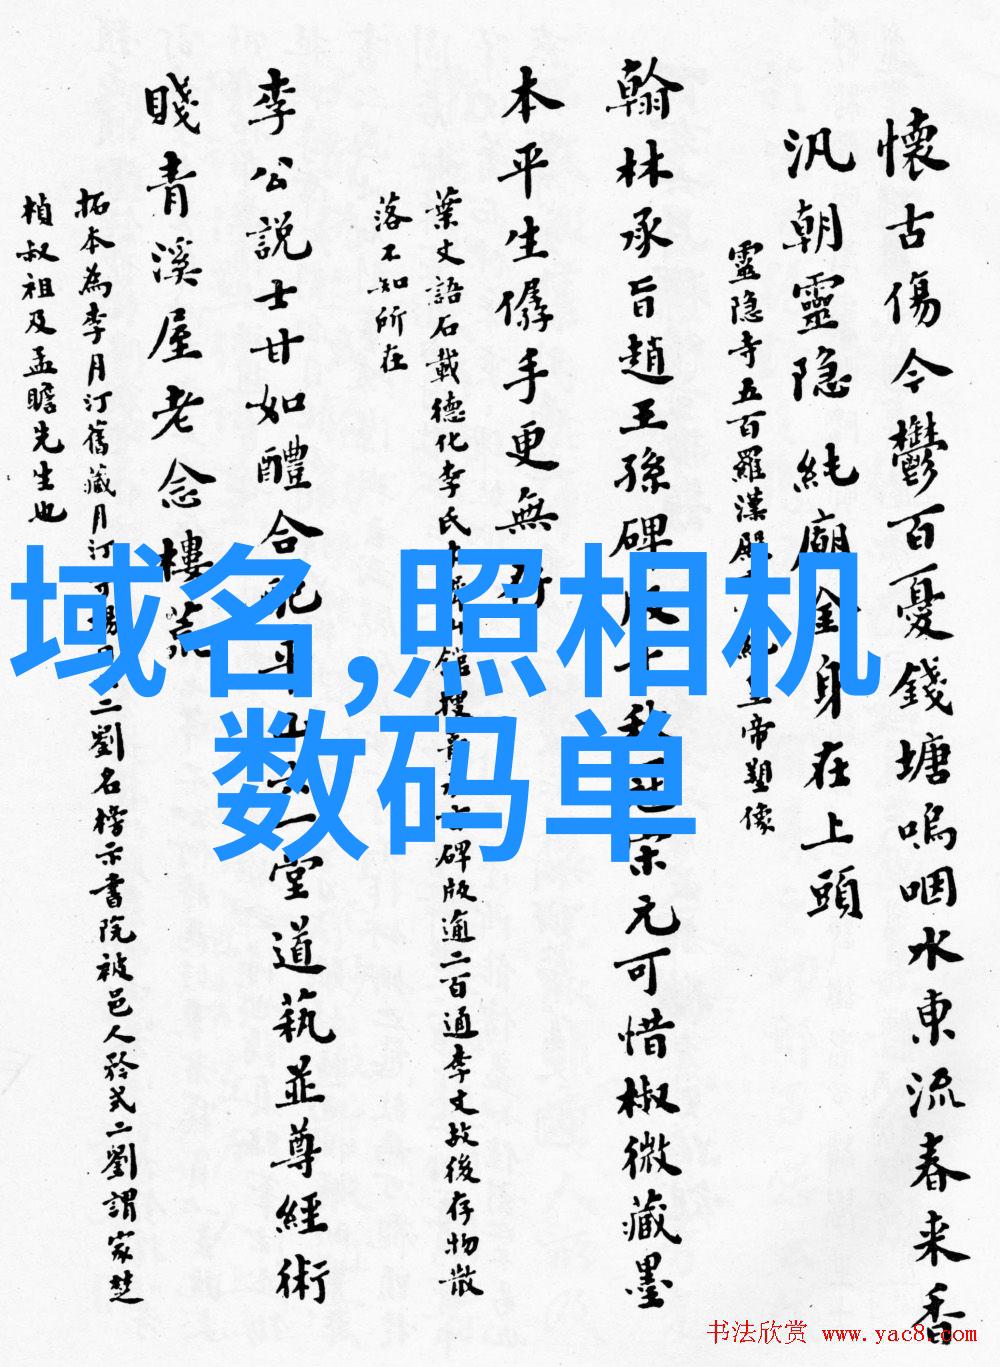 懷古傷今鬱百憂錢塘嗚咽水東流春来香
汎朝靈隐純廟金身在上頭
靈隐寺五百羅漢殿 純皇帝塑像
翰林承旨趙王孫碑版 宋元可惜椒微藏墨
本平生儔手更無
葉文語石載德化李氏 館搜 碑版逾二百通李文故後存物散
落不知所在
李公説士甘如醴合 一堂道蓺並尊經術
賤青溪屋老念樓荒
拓本為李月汀舊藏月汀 二劉名榜示書院被邑人矜式二劉謂家楚
楨叔祖及孟瞻先生也
域名,照相机
数码单
书法欣赏 www.yac8.com